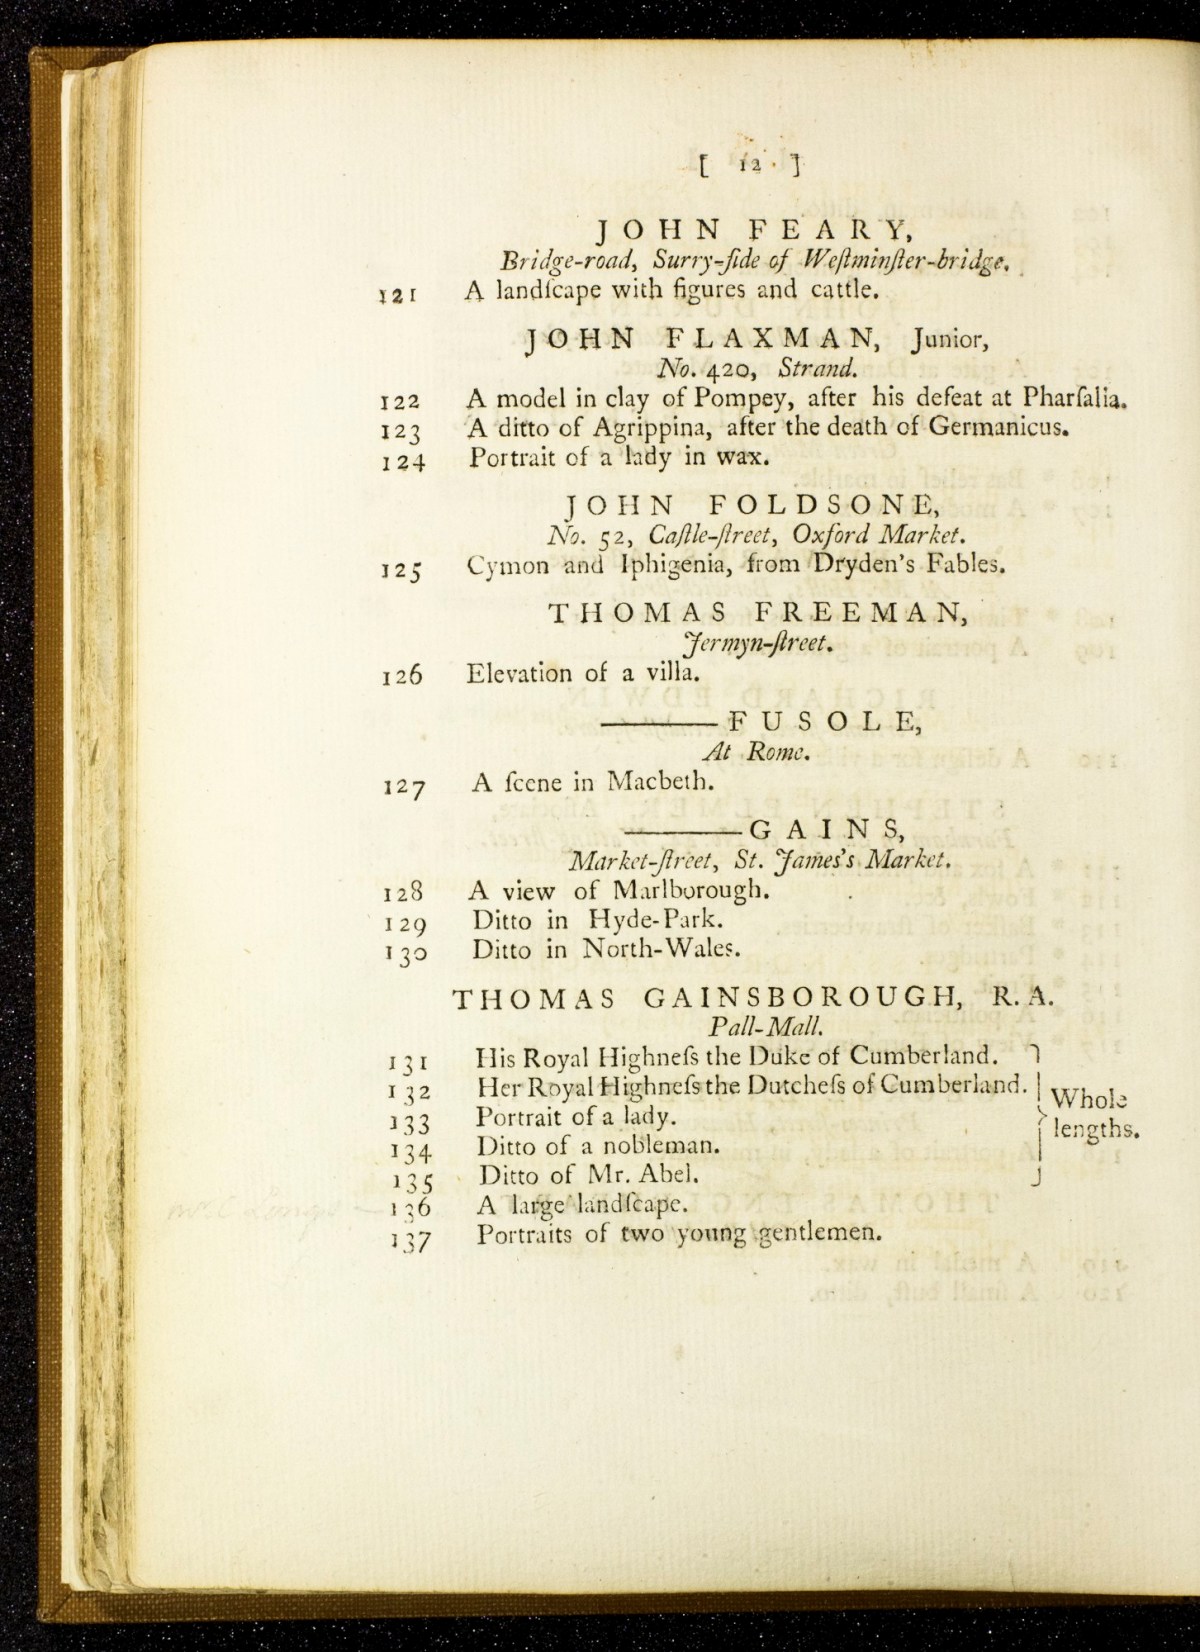 [ 12 ]
JOHN FEARY,
Bridge-road, Surry-ſide of Weſtminſter-bridge.
121 A landſcape with figures and cattle.
JOHN FLAXMAN, Junior,
No. 420, Strand.
122 A model in clay of Pompey, after his defeat at Pharſalia.
123 A ditto of Agrippina, after the death of Germanicus.
124 Portrait of a lady in wax.
JOHN FOLDSONE,
No. 52, Caſtle-ſtreet, Oxford Market.
125 Cymon and Iphigenia, from Dryden's Fables.
THOMAS FREEMAN,
Jermyn-ſtreet.
126 Elevation of a villa.
——FUSOLE,
At Rome.
127 A ſcene in Macbeth.
——GAINS,
Market-ſtreet, St. James's Market.
128 A view of Marlborough.
129 Ditto in Hyde-Park.
130 Ditto in North-Wales.
THOMAS GAINSBOROUGH, R. A.
Pall-Mall.
131 His Royal Highneſs the Duke of Cumberland.
132 Her Royal Highneſs the Dutcheſs of Cumberland.
133 Portrait of a lady.
134 Ditto of a nobleman.
135 Ditto of Mr. Abel.
Whole
lengths.
136 A large landſcape.
137 Portraits of two young gentlemen.